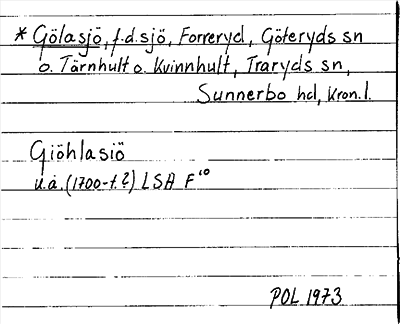 * Gölasjö, f.d. sjö, Forreryd, Göteryds sn
o. Tärnhult o. Kvinnhult, Traryds sn,
Sunnerbo hd, Kron. l.
Giöhlasiö
u.å. (1700-t.?) LSA F¹⁰
POL 1973